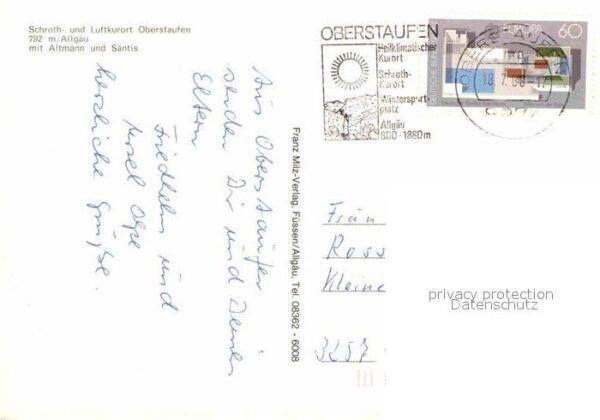 Schroth- und Luftkurort Oberstaufen
792 m/Allgäu
mit Altmann und Säntis
Aus Oberstaufen
senden Dir und Deinen
Eltern
Friedhelm und
herzliche Grüße.
Franz Milz-Verlag, Füssen/Allgäu, Tel. 08362 - 6008
OBERSTAUFEN
Heilklimatischer
Kurort
Schroth-
Kurort
Wintersport-
platz
Allgäu
800-1880m
EUROPA 60
Frau
Ross
Kleine
3257
privacy protection
Datenschutz